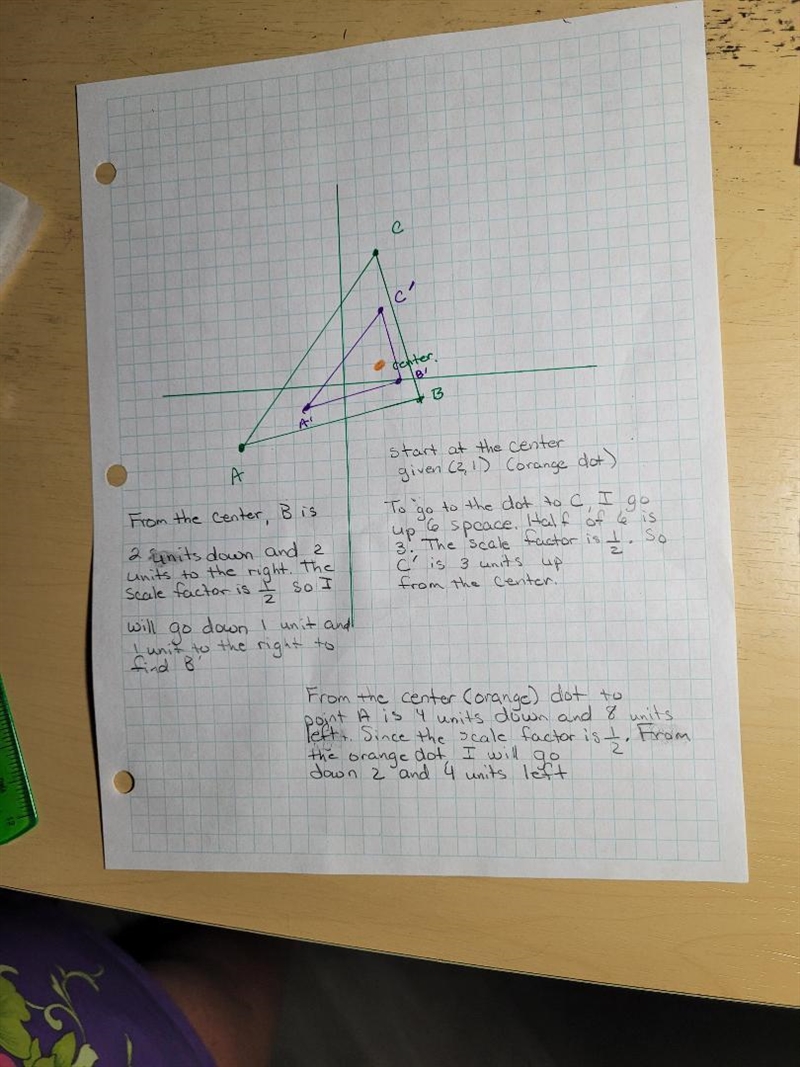 C
C'
center.
B'
B
A'
A
start at the center
given (2,1) (orange dot)
To go to the dot to C, I go
up 6 spcace. Half of 6 is
3. The scale factor is 1/2. So
C' is 3 units up
from the center.
From the center, B is
2 units down and 2
units to the right. The
scale factor is 1/2 so I
will go down 1 unit and
1 unit to the right to
find B'
From the center (orange) dot to
point A is 4 units down and 8 units
left. Since the scale factor is 1/2. From
the orange dot I will go
down 2 and 4 units left